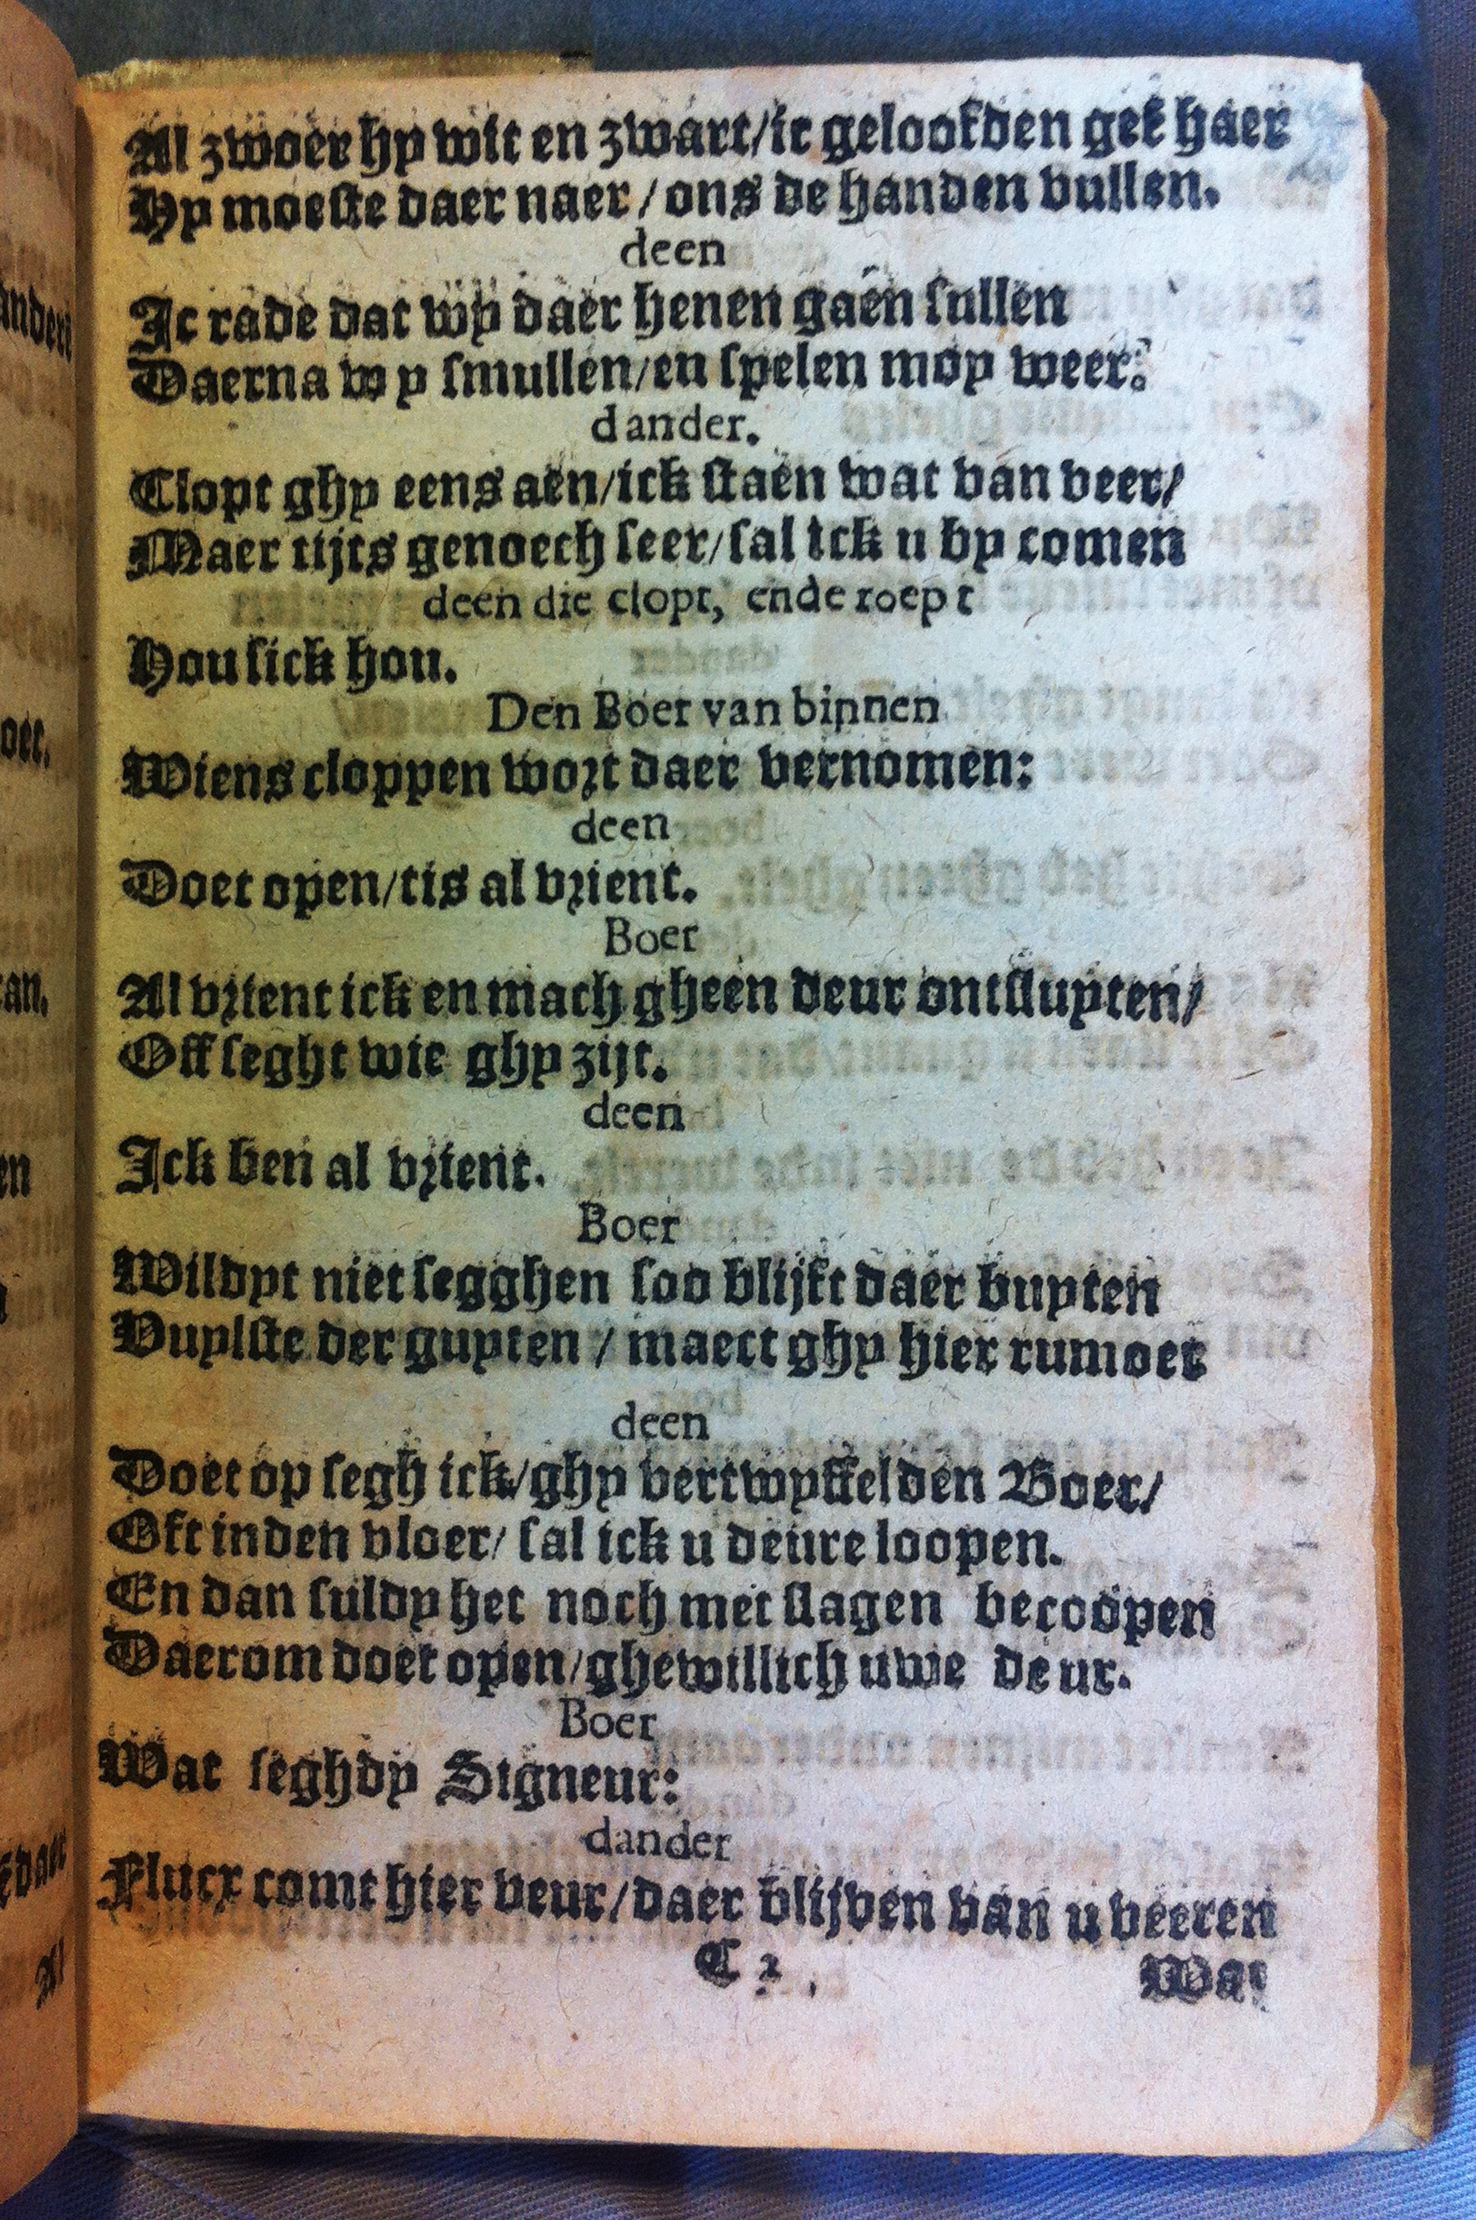 Al zwoer hy wit en zwart/ic geloofden gek haer
Hy moeste daer naer/ons de handen vullen.
deen
Ic rade dat wy daer henen gaen sullen
Daerna wy smullen/en spelen moy weer.
dander.
Clopt ghy eens aen/ick staen wat van veer/
Maer tijts genoech seer/sal ick u by comen
deen die clopt, ende roept
Hou sick hou.
Den Boer van binnen
Wiens cloppen wort daer vernomen:
deen
Doet open/tis al vrient.
Boer
Al vrient ick en mach gheen deur ontsluyten/
Off seght wie ghy zijt.
deen
Ick ben al vrient.
Boer
Wildyt niet segghen soo blijft daer buyten
Vuylste der guyten / maect ghy hier rumoer
deen
Doet op segh ick/ghy vertwyffelden Boer/
Oft inden vloer/ sal ick u deure loopen.
En dan suldy het noch met slagen becoopen
Daerom doet open/ghewillich uwe deur.
Boer
Wat seghdy Signeur:
dander
Flucx comt hier veur/daer blijven van u veeren
C 2
Wat